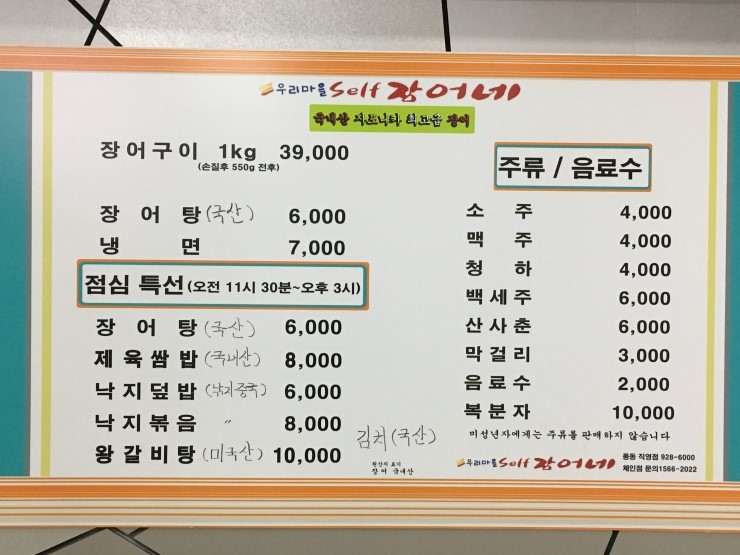 우리마을 Self 장어네
국내산 자포니카 최고급 장어
장어구이 1kg 39,000
(손질후 550g 전후)
장어탕 (국산) 6,000
냉면 7,000
점심 특선 (오전 11시 30분~오후 3시)
장어탕 (국산) 6,000
제육쌈밥 (국내산) 8,000
낙지덮밥 (낙지중국) 6,000
낙지볶음 〃 8,000
왕갈비탕 (미국산) 10,000
김치 (국산)
원산지 표시
장어 국내산
주류 / 음료수
소주 4,000
맥주 4,000
청하 4,000
백세주 6,000
산사춘 6,000
막걸리 3,000
음료수 2,000
복분자 10,000
미성년자에게는 주류를 판매하지 않습니다
우리마을 Self 장어네
용동 직영점 928-6000
체인점 문의1566-2022